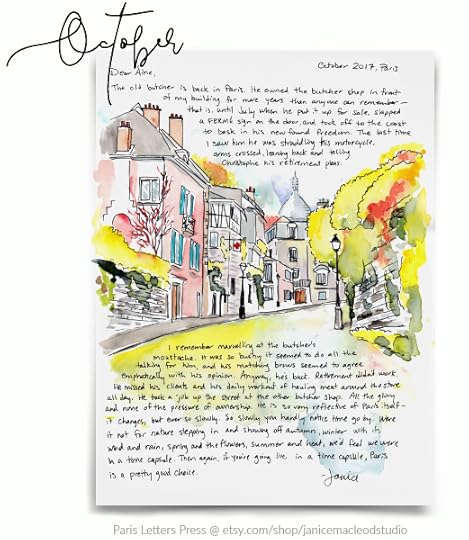 October
October 2017, Paris
Dear Áine,
The old butcher is back in Paris. He owned the butcher shop in front
of my building for more years than anyone can remember —
that is, until July when he put it up for sale, slapped
a FERMÉ sign on the door, and took off to the coast
to bask in his newfound freedom. The last time
I saw him he was straddling his motorcycle,
arms crossed, leaning back and telling
Christophe his retirement plans.
I remember marvelling at the butcher's
moustache. It was so bushy it seemed to do all the
talking for him, and his matching brows seemed to agree
emphatically with his opinion. Anyway, he's back. Retirement didn't work.
He missed his clients and his daily workout of hauling meat around the store
all day. He took a job up the street at the other butcher shop. All the glory
and none of the pressure of ownership. He is so very reflective of Paris itself -
it changes, but ever so slowly. So slowly you hardly notice time go by. Were
it not for nature stepping in and showing off autumn, winter with its
wind and rain, spring and the flowers, summer and heat, we'd feel we were
in a time capsule. Then again, if you're going live in a time capsule, Paris
is a pretty good choice.
-Janice
Paris Letters Press @ etsy.com/shop/janicemacleodstudio